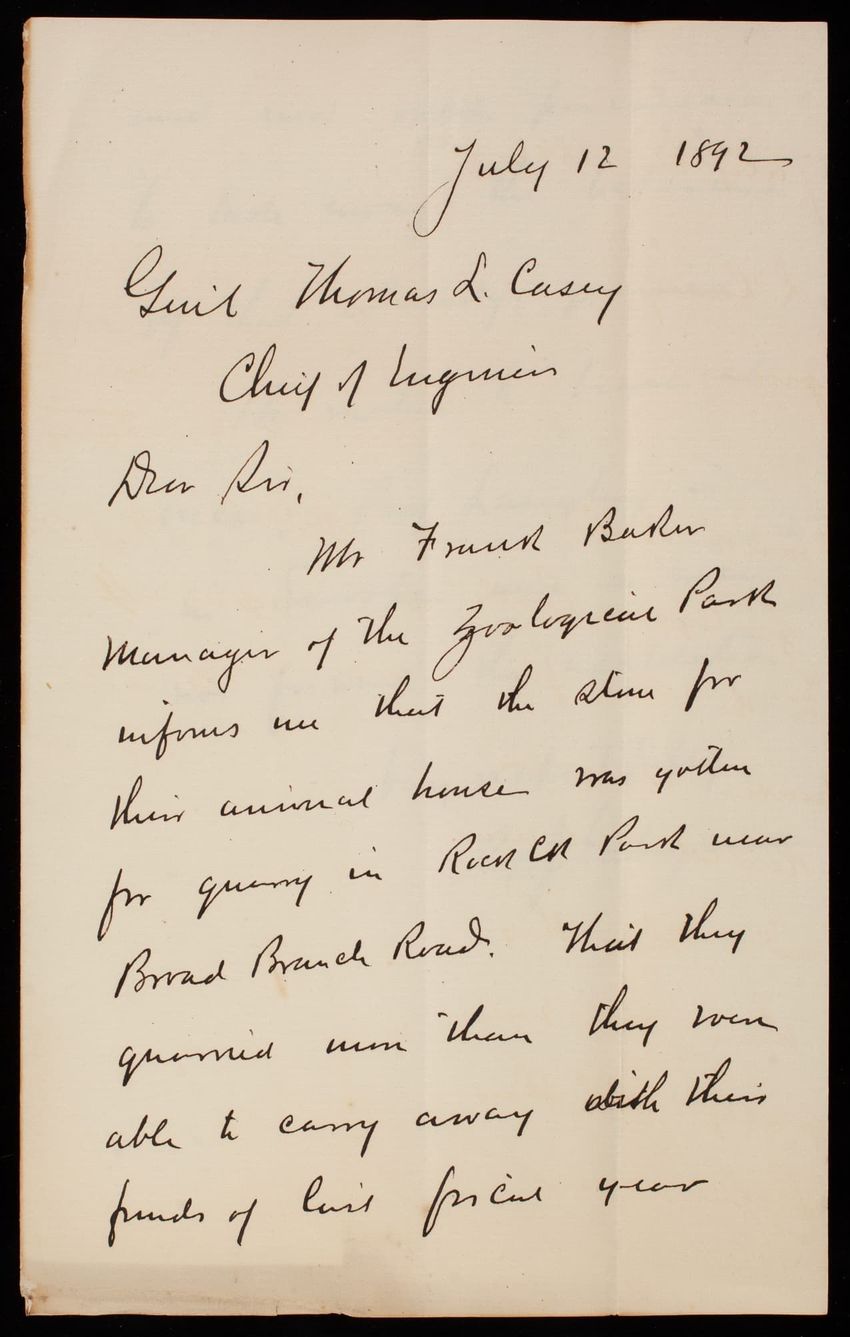 July 12 1892
Genl Thomas L. Casey
Chief of Engineers
Dear Sir,
Mr Frank Baker
Manager of the Zoological Park
informs me that the stone for
their animal house was gotten
for quarry in Rock Ck Park near
Broad Branch Road. That they
quarried more than they were
able to carry away with their
funds of last fiscal year